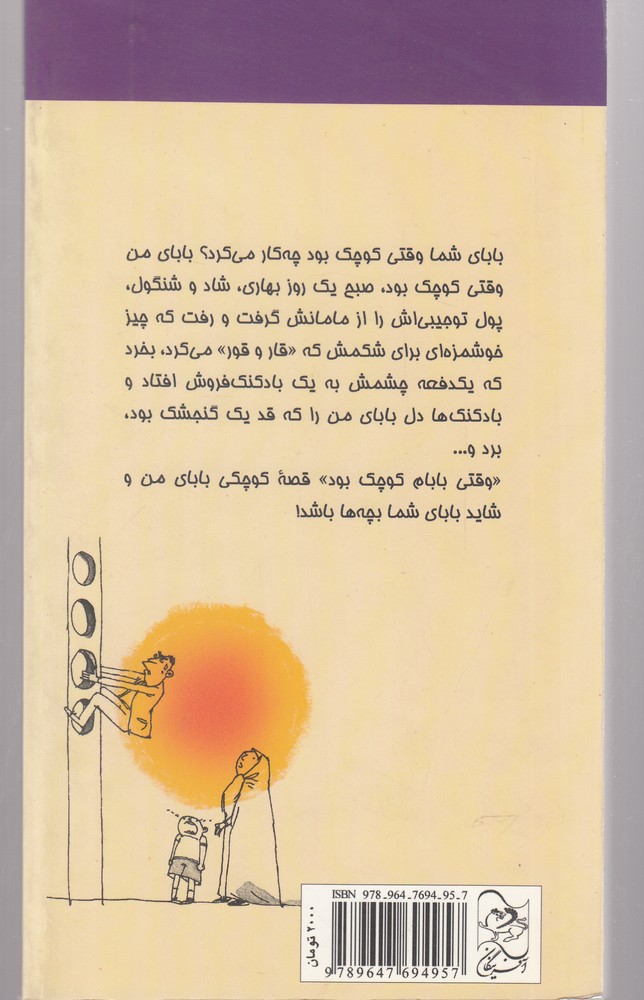 بابای شما وقتی کوچک بود چه‌کار می‌کرد؟ بابای من
وقتی کوچک بود، صبح یک روز بهاری، شاد و شنگول،
پول توجیبی‌اش را از مامانش گرفت و رفت که چیز
خوشمزه‌ای برای شکمش که «قار و قور» می‌کرد، بخرد
که یکدفعه چشمش به یک بادکنک‌فروش افتاد و
بادکنک‌ها دل بابای من را که قد یک گنجشک بود،
برد و...
«وقتی بابام کوچک بود» قصهٔ کوچکی بابای من و
شاید بابای شما بچه‌ها باشد!
ISBN 978-964-7694-95-7
9789647694957
۲۰۰۰ تومان
آفرینگان